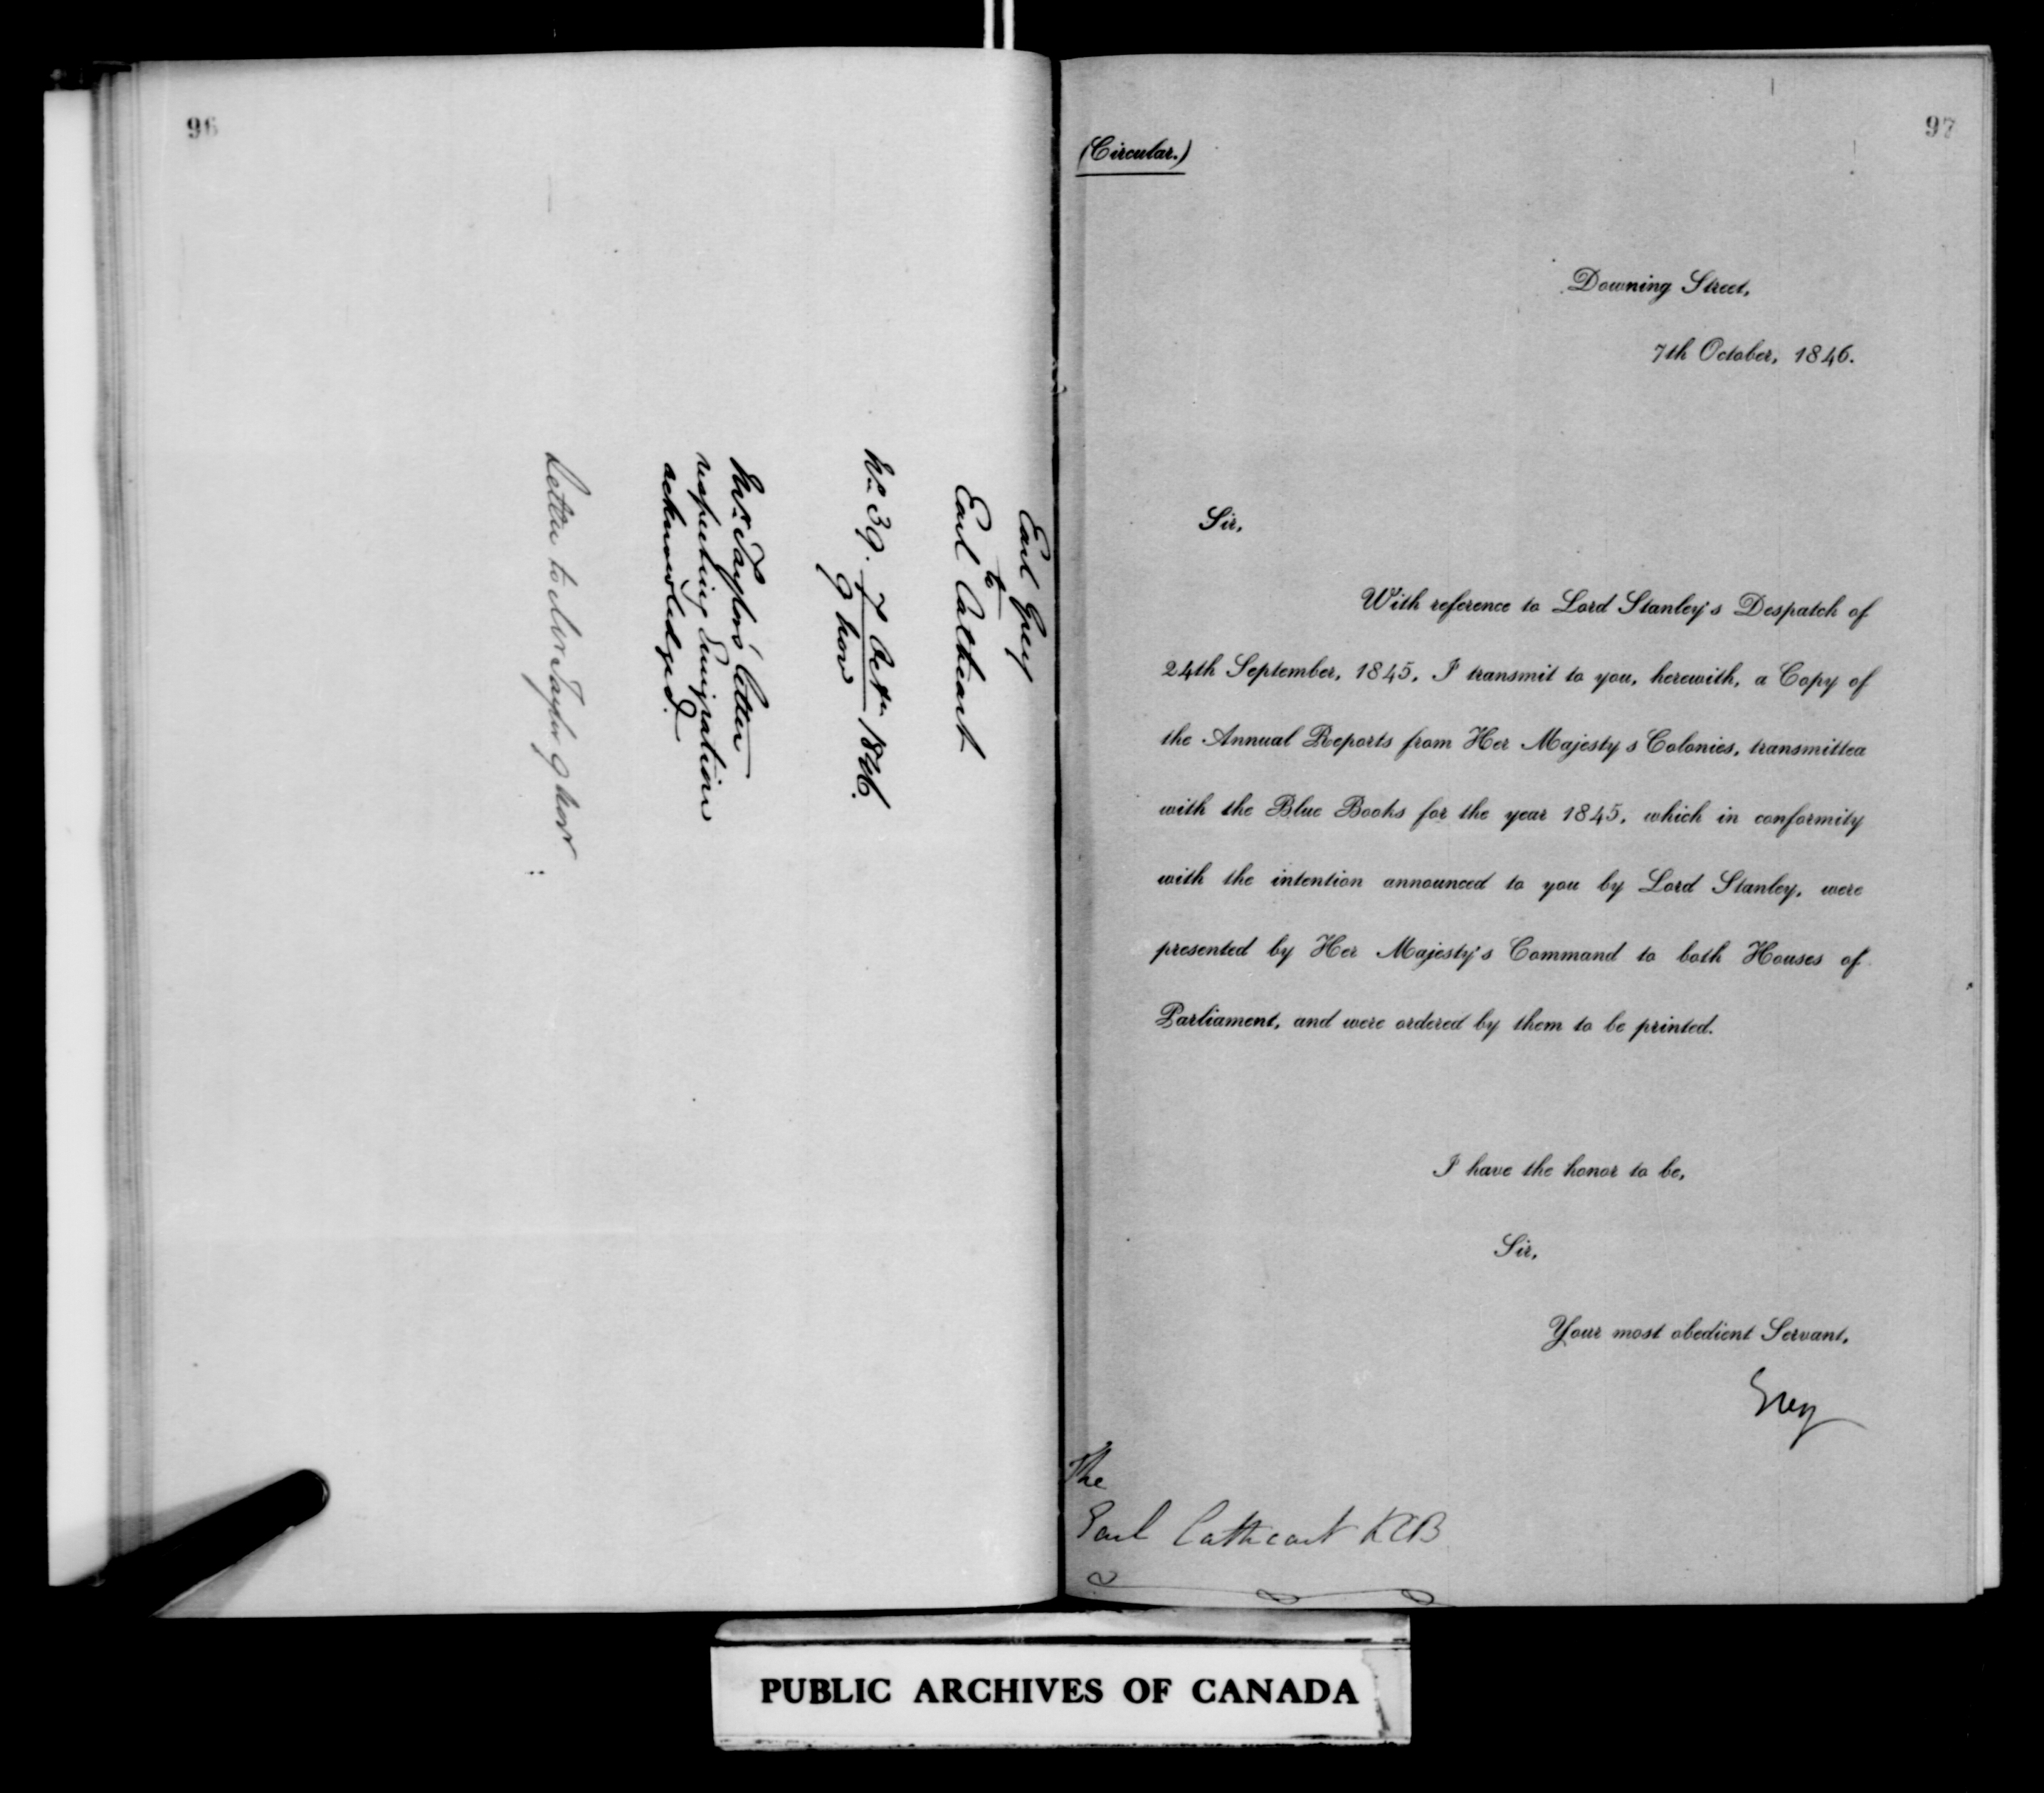 96
Earl Grey
to
Earl Cathcart
No. 39. 7 Octr. 1846.
9 Nov
Mr. Taylor's letter
respecting Emigration
acknowledged.
Letter to Mr Taylor 9 Nov
97
(Circular.)
Downing Street,
7th October, 1846.
Sir,
With reference to Lord Stanley's Despatch of
24th September, 1845, I transmit to you, herewith, a Copy of
the Annual Reports from Her Majesty s Colonies, transmitted
with the Blue Books for the year 1845, which in conformity
with the intention announced to you by Lord Stanley, were
presented by Her Majesty's Command to both Houses of
Parliament, and were ordered by them to be printed.
I have the honor to be,
Sir,
Your most obedient Servant,
Grey
The
Earl Cathcart KCB
PUBLIC ARCHIVES OF CANADA